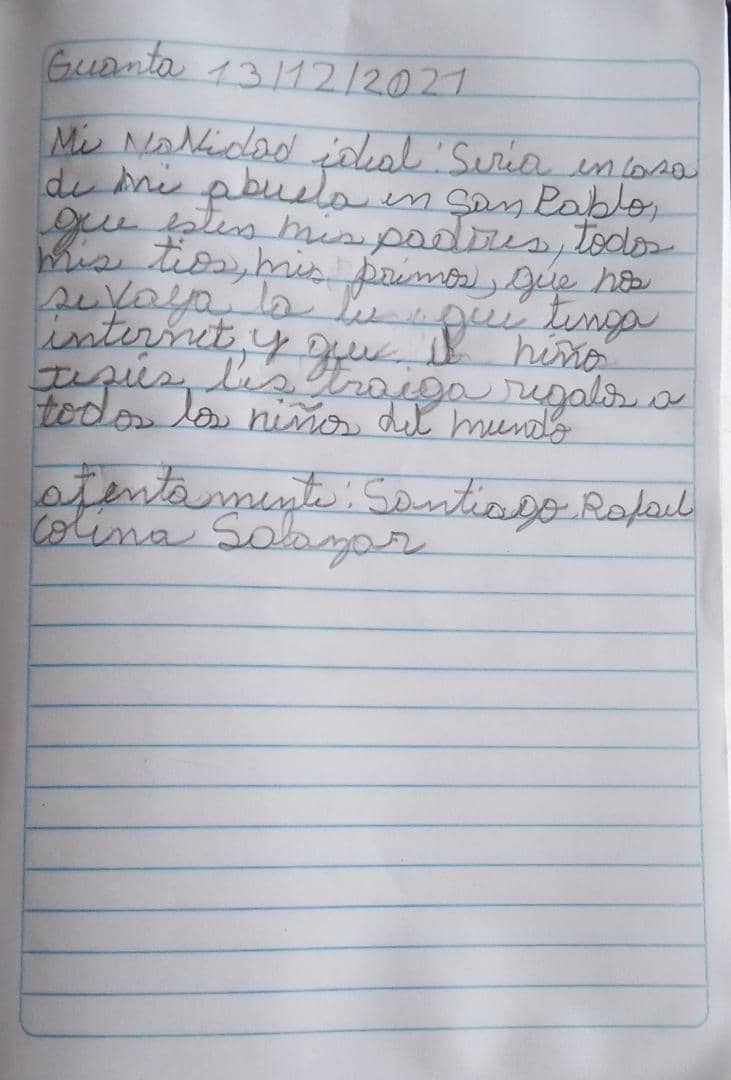 Guanta 13/12/2021
Mi Navidad ideal: Seria en casa
de mi abuela en San Pablo,
que esten mis padres, todos
mis tios, mis primos, que nos
se vaya la lu que tenga
internet, y que el niño
Jesús les traiga regalos a
todos los niños del mundo
atentamente: Santiago Rafael
Colina Salazar